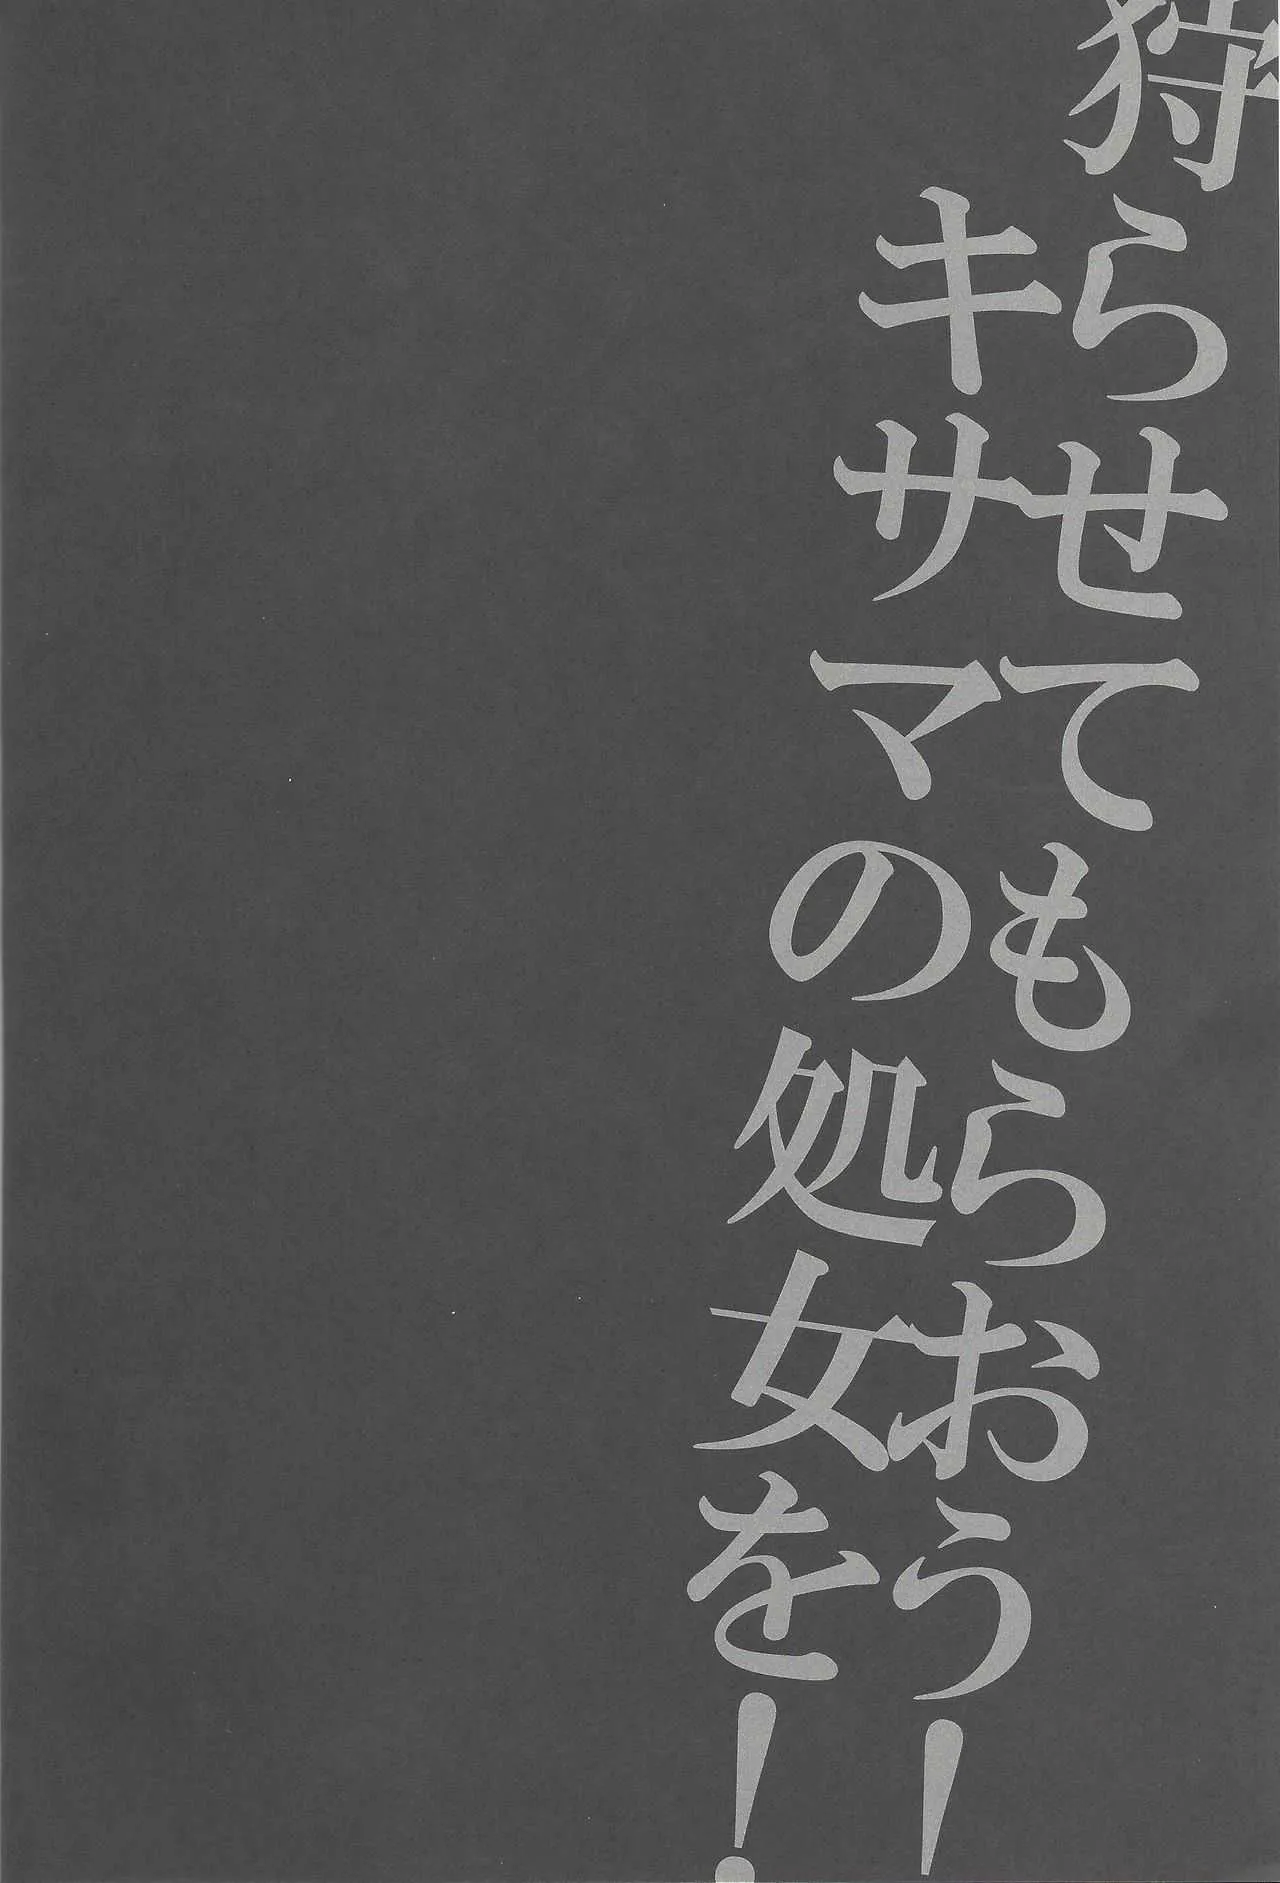 狩らせてもらおう！
キサマの処女を！